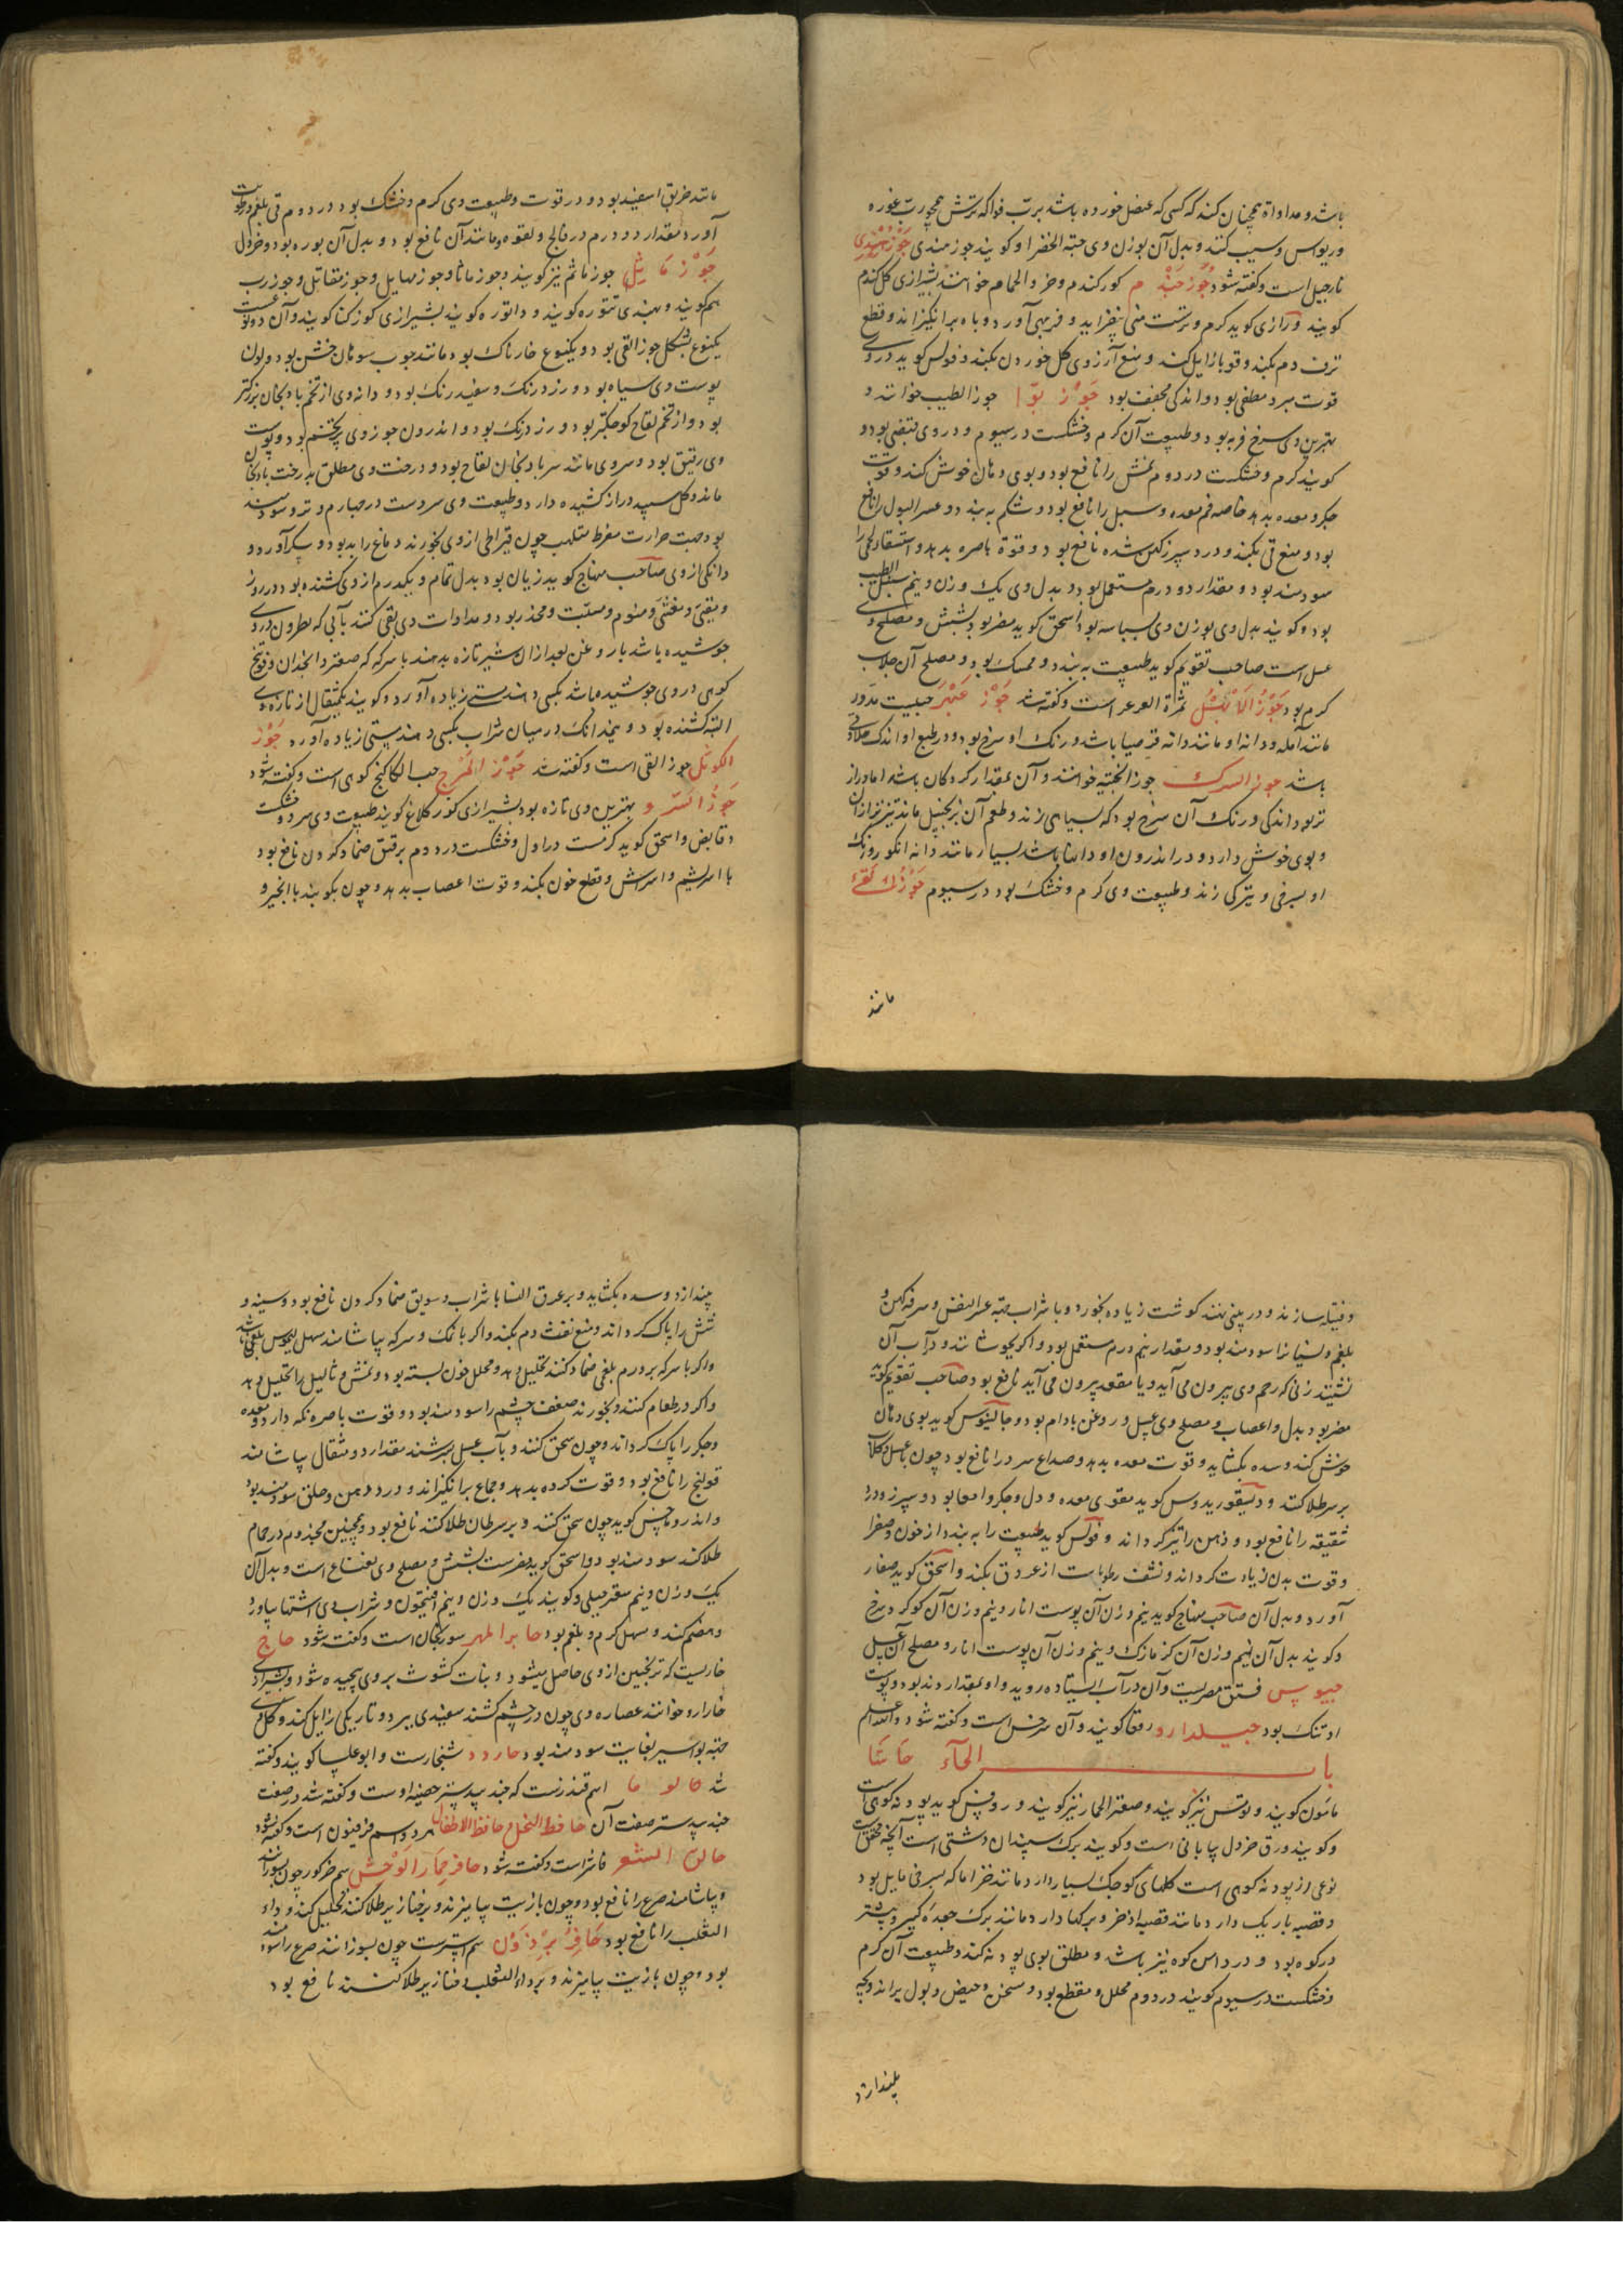 باشد و مداواة همچنان کنند که کسی که عنصل خورده باشد برب فواکه ترش همچو رب غوره
و ریواس و سیب کنند و بدل آن بوزن وی حبة الخضرا و کویند جوز مندی جَوْزُ هِنْدِی
نارجیل است و کفته شود جَوْز جَنْدُم کور کندم و خرو الحمام خوانند بشیرازی کل کندم
کویند و رازی کوید کرم و ترست منی بیفزاید و فربهی آورد و باه برانکیزاند و قطع
نزف دم بکند و قوبا زایل کند و منع آرزوی کل خوردن بکند و فولس کوید در وی
قوت مبرد مطفی بود و اندکی مجفف بود جَوْز بَوّا جوز الطیب خوانند و
بهترین وی سرخ فربه بود و طبیعت آن کرم و خشکست در سیوم و در وی قبضی بود و
کویند کرم و خشکست در دوم نمش را نافع بود و بوی دهان خوش کند و قوت
جکر و معده بدهد خاصه فم معده و سبل را نافع بود و شکم به بندد و عسر البول را نافع
بود و منع قی بکند و درد سپرز کهن شده نافع بود و قوة باصره بدهد و استسقاء لحمی را
سودمند بود و مقدار دو درم مستعمل بود و بدل وی یک وزن و نیم سنبل الطیب
بود و کویند بدل وی بوزن وی بسباسه بود و اسحق کوید مضر بود بشش و مصلح وی
عسل است صاحب تقویم کوید طبیعت به بندد و ممسک بود و مصلح آن جلاب
کرم بود جَوْزُ الاَبْهُل ثمرة العرعر است و کفته شد جَوْز عَبْهَر حبیست مدور
مانند آمله و دانه او مانند دانه قرصیا باشد و رنک او سرخ بود و در طبع او اندک حلاوتی
باشد جوز السرک جوز الخبته خوانند و آن بمقدار کردکان باشد اما دراز
تر بود اندکی و رنک آن سرخ بود که بسیاهی زند و طعم آن بزنجبیل ماند تیزتر از آن
و بوی خوش دارد و در اندرون او دانها باشد بسیار مانند دانه انکور و رنک
او بسرخی و تیرکی زند و طبیعت وی کرم و خشک بود در سیوم جَوْزُ القَیْ
مانند
مانند خربق اسفید بود و در قوت و طبیعت وی کرم و خشک بود در دوم قی بلغم و رطوبت
آورد مقدار دو درم در فالج و لقوه و مانند آن نافع بود و بدل آن بوره بود و خردل
جَوْز مَاثِل جوز ماثم نیز کویند و جوز ماثا و جوز مهایل و جوز مقاتل و جوز رب
هم کویند و بهندی تتوره کویند و داتوره کویند بشیرازی کوز کنا کویند و آن دو نوعست
یکنوع بشکل جوز القی بود و یکنوع خارناک بود مانند جوب سوهان خشن بود و لون
پوست وی سیاه بود و زرد رنک و سفید رنک بود و دانه وی از تخم بادنجان بزرکتر
بود و از تخم لفاح کوچکتر بود و زرد رنک بود و اندرون جوز وی پر تخم بود و پوست
وی رقیق بود و سر وی مانند سر بادنجان لفاح بود و درخت وی مطلق بدرخت بادنجان
ماند و کل سپید دراز کشیده دارد و طبیعت وی سردست در چهارم و تر و سودمند
بود جهت حرارت مفرط ملتهب چون قیراطی از وی بخورند دماغ را بد بود و سکر آورد و
دانکی از وی صاحب منهاج کوید زیان بود بدل تمام و یکدرم از وی کشنده بود در روز
و مقی و مغثی و منوم و مسبت و مخدر بود و مداوات وی بقی کنند بآبی که نطرون در وی
جوشیده باشد با روغن بعد از آن شیر تازه بدهند با سرکه که صعتر و انجدان و فوتنج
کوهی در وی جوشیده باشد بکسی دهند مستی زیاده آورد و کویند یکمثقال از تازه وی
البته کشنده بود و نیمدانک در میان شراب بکسی دهند مستی زیاده آورد جَوْز
الکوثل جوز القی است و کفته شد جَوْز المَرْج حب الکاکنج کوهی است و کفته شود
جَوْزُ السَّرْو بهترین وی تازه بود بشیرازی کوز کلاغ کویند طبیعت وی سرد و خشکست
و قابض و اسحق کوید کرمست در اول و خشکست در دوم بر فتق ضماد کردن نافع بود
با سریشم و سریش و قطع خون بکند و قوت اعصاب بدهد و چون بکوبند با انجیر و
و فتیله سازند و در بینی نهند کوشت زیاده بخورد و با شراب جهة عسر النفس و سرفه کهن و
بلغم و نسیان را سودمند بود و مقدار نیم درم مستعمل بود و اکر بجوشانند و در آب آن
نشینند زنی که رحم وی بیرون می آید و یا مقعد بیرون می آید نافع بود صاحب تقویم کوید
مضر بود بدل و اعصاب و مصلح وی عسل و روغن بادام بود و جالینوس کوید بوی دهان
خوش کند و سده بکشاید و قوت معده بدهد و صداع سرد را نافع بود چون با عسل و کلاب
بر سر طلا کنند و دیسقوریدوس کوید مقوی معده و دل و جکر و امعا بود و سپرز و درد
شقیقه را نافع بود و ذهن را تیز کرداند و فولس کوید طبیعت را به بندد از خون و صفرا
و قوت بدن زیادت کرداند و نشف رطوبات از عروق بکند و اسحق کوید صفار
آورد و بدل آن صاحب منهاج کوید نیم وزن آن پوست انار و نیم وزن آن کوکرد سرخ
و کویند بدل آن نیم وزن آن کزمازک و نیم وزن آن پوست انار و مصلح آن عسل
جیبوس فستق مصریست و آن در آب ایستاده روید و او بمقدار دند بود و پوست
او تنک بود جیلدارو رفقا کویند و آن سرخس است و کفته شود والله اعلم
باب الحآء حَاشَا
مامون کویند و توتس نیز کویند و صعتر الحمار نیز کویند و روفس کوید پودنه کوهی است
و کویند ورق خردل بیابانی است و کویند برک سپندان دشتی است آنچه محقق است
نوعی از پودنه کوهی است کلهای کوچک بسیار دارد مانند خزاما که بسرخی مایل بود
و قصبه باریک دارد مانند قصبه اذخر و برکها دارد مانند برک جعده کبیر و بیشتر
در کوه بود و در دامن کوه نیز باشد و مطلق بوی پودنه کند و طبیعت آن کرم
و خشکست در سیوم کویند در دوم محلل و مقطع بود و مسخن و حیض و بول براند و بچه
بیندازد
بیندازد و سده بکشاید و بر عرق النسا با شراب و سویق ضماد کردن نافع بود و سینه و
شش را پاک کرداند و منع نفث دم بکند و اکر با نمک و سرکه بیاشامند مسهل کیموس بلغمی باشد
و اکر با سرکه بر ورم بلغمی ضماد کنند تحلیل دهد و محلل خون بسته بود و نمش و ثالیل را تحلیل دهد
و اکر در طعام کنند و بخورند ضعف چشم را سودمند بود و قوت باصره نکه دارد و معده
و جکر را پاک کرداند و چون سحق کنند و بآب عسل بسرشند مقدار دو مثقال بیاشامند
قولنج را نافع بود و قوت کرده بدهد و جماع برانکیزاند و درد دهن و حلق سودمند بود
و اندروماخس کوید چون سحق کنند و بر سرطان طلا کنند نافع بود و همچنین مجذوم در حمام
طلا کند سودمند بود و اسحق کوید مضرست بشش و مصلح وی نعناع است و بدل آن
یک وزن و نیم سعتر جبلی و کویند یک وزن و نیم افتیمون و شراب وی اشتها بیاورد
و هضم کند و مسهل کرم و بلغم بود حابرا لمهر سورنجان است و کفته شود حاج
خاریست که ترنجبین از وی حاصل میشود و نبات کشوث بر وی پیچیده شود و بشیرازی
خارارو خوانند عصاره وی چون در چشم کشند سفیدی ببرد و تاریکی زایل کند و کل وی
جهة بواسیر بغایت سودمند بود حاردد شنجارست و ابو علسا کویند و کفته
شد حالوما اسم قندزست که جندبیدستر خصیه اوست و کفته شد در صفت
جندبیدستر صفت آن حافظ النحل و حافظ الاطفال هر دو اسم فرفیون است و کفته شود
حالق الشعر فاشرا است و کفته شود حافر حمار الوحش سم خر کور چون بسوزانند
و بیاشامند صرع را نافع بود و چون با زیت بیامیزند و بر خنازیر طلا کنند تحلیل کند و داء
الثعلب را نافع بود حَافِرُ بِرْذَوْن سم استرست چون بسوزانند صرع را سودمند
بود و چون با زیت بیامیزند و بر داء الثعلب و خنازیر طلا کنند نافع بود